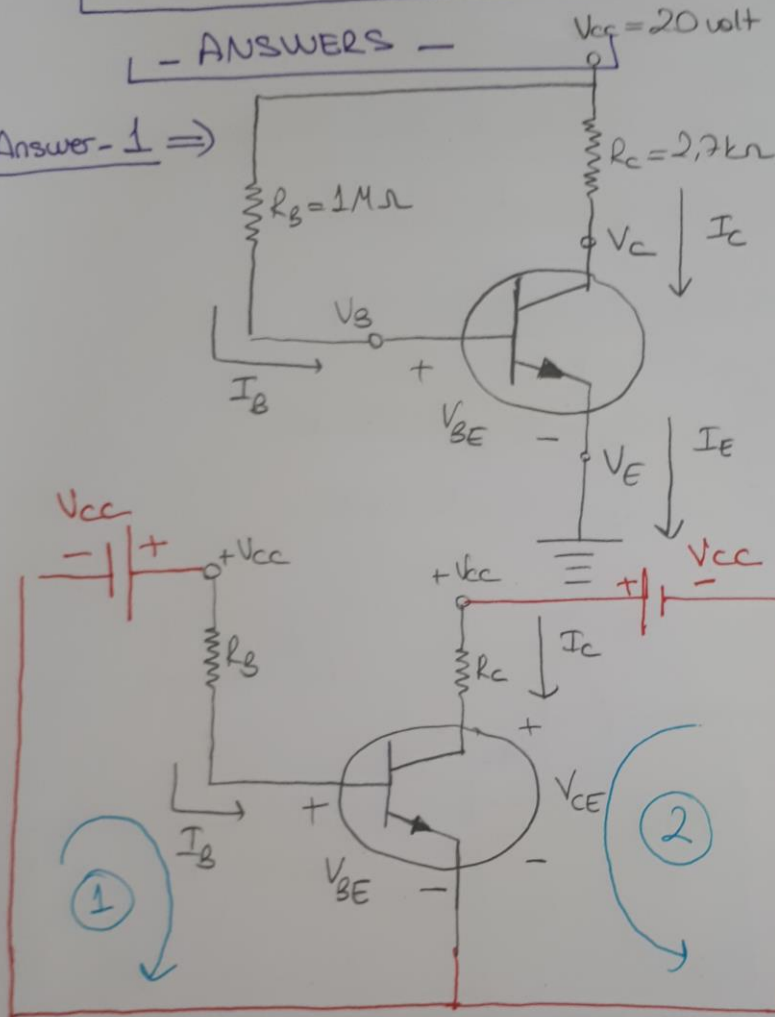 - ANSWERS -
Vcc = 20 volt
Answer-1 ⇒
RB = 1MΩ
RC = 2,7kΩ
VC
IC
VB
+
IB
VBE
-
VE
IE
Vcc
- +
+Vcc
+Vcc
+ -
Vcc
RB
RC
IC
+
+
VCE
IB
VBE
-
-
1
2